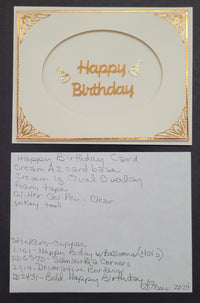 Happy
Birthday
Happy Birthday Card
Cream A2 card base
Cream lg Oval Overlay
foam tape
Glitter Gel Pen - Clear
pokey tool
Stickers - copper
1101 - Happy Bday w/Balloons
DD6570 - Samantha's Corners
2914 - Decorative Borders
DD2431 - Bold, Happy Birthday
2023